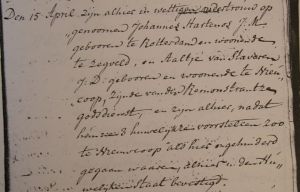 Den 15 April zijn alhier in wettigen ondertrouw op
genoomen Johannes Hartenos J.M.
gebooren te Rotterdam en woonende
te Zegveld, en Aaltje van Staveren
J.D: gebooren en woonende te Nieu
coop, zijnde van die Remonstrantze
godsdienst, en zijn alhier, nadat
hun reed 3 huwelijkse voorstellen zoo
te Nieuwcoop als hier ongehinderd
gegaan waaren, alhier in den Hu
welijken Staat bevestigd.